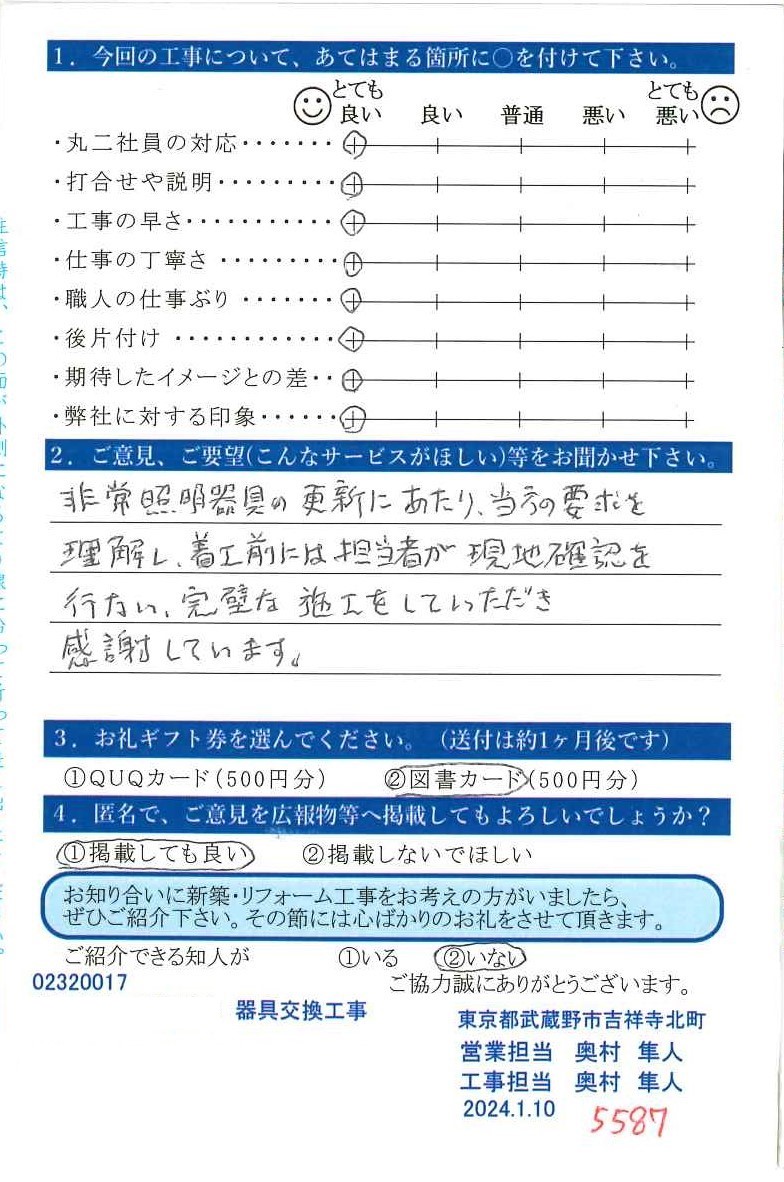 1．今回の工事について、あてはまる箇所に○を付けて下さい。
とても良い 良い 普通 悪い とても悪い
・丸二社員の対応・・・・・・・
・打合せや説明・・・・・・・・・
・工事の早さ・・・・・・・・・・・
・仕事の丁寧さ ・・・・・・・・・
・職人の仕事ぶり ・・・・・・・
・後片付け ・・・・・・・・・・・・
・期待したイメージとの差・・
・弊社に対する印象・・・・・・
2．ご意見、ご要望(こんなサービスがほしい)等をお聞かせ下さい。
非常照明器具の更新にあたり、当方の要求を
理解し、着工前には担当者が現地確認を
行ない、完璧な施工をしていただき
感謝しています。
3．お礼ギフト券を選んでください。（送付は約1ヶ月後です）
①QUQカード(500円分) ②図書カード(500円分)
4．匿名で、ご意見を広報物等へ掲載してもよろしいでしょうか？
①掲載しても良い ②掲載しないでほしい
お知り合いに新築・リフォーム工事をお考えの方がいましたら、
ぜひご紹介下さい。その節には心ばかりのお礼をさせて頂きます。
ご紹介できる知人が ①いる ②いない
02320017 ご協力誠にありがとうございます。
器具交換工事 東京都武蔵野市吉祥寺北町
営業担当 奥村 隼人
工事担当 奥村 隼人
2024.1.10 5587